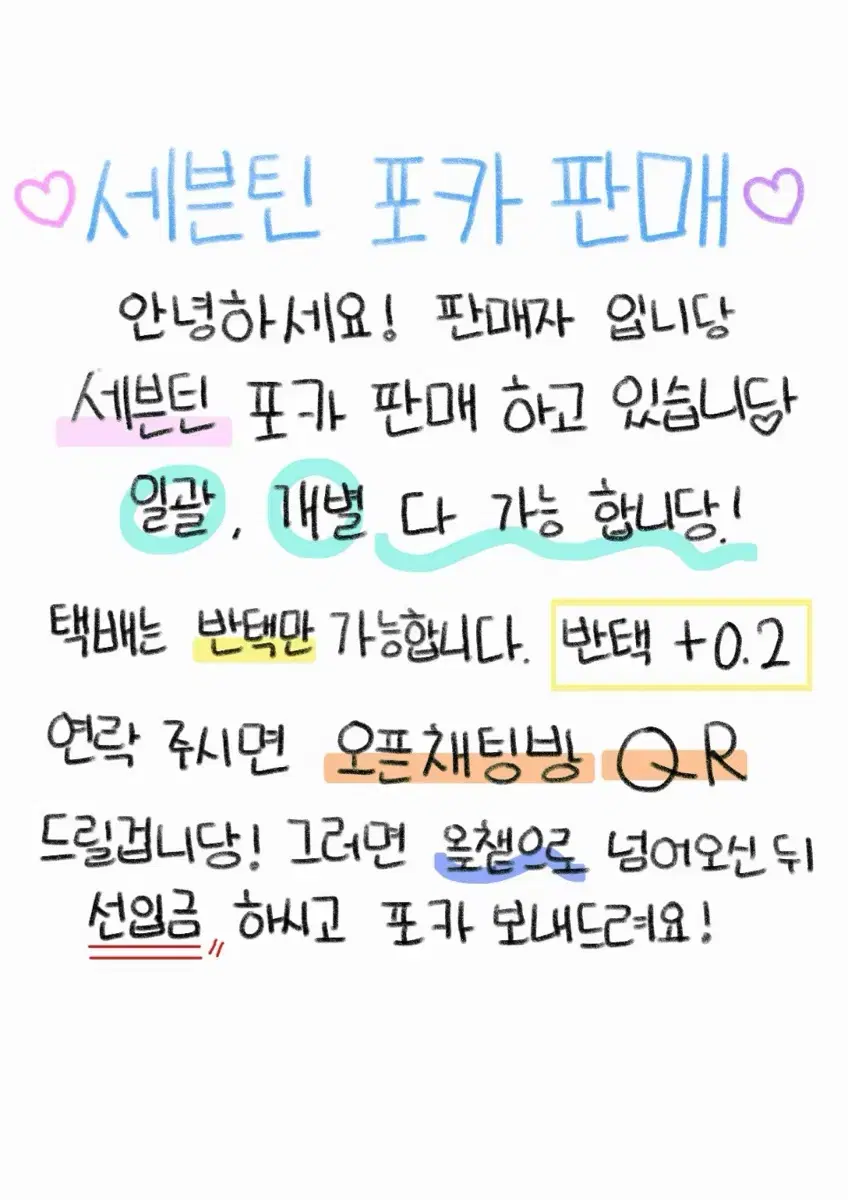 세븐틴 포카 판매
안녕하세요! 판매자 입니당
세븐틴 포카 판매 하고 있습니당
일괄, 개별 다 가능 합니당!
택배는 반택만 가능합니다. 반택 +0.2
연락 주시면 오픈채팅방 QR
드릴겁니당! 그러면 옾챝으로 넘어오신 뒤
선입금 하시고 포카 보내드려요!